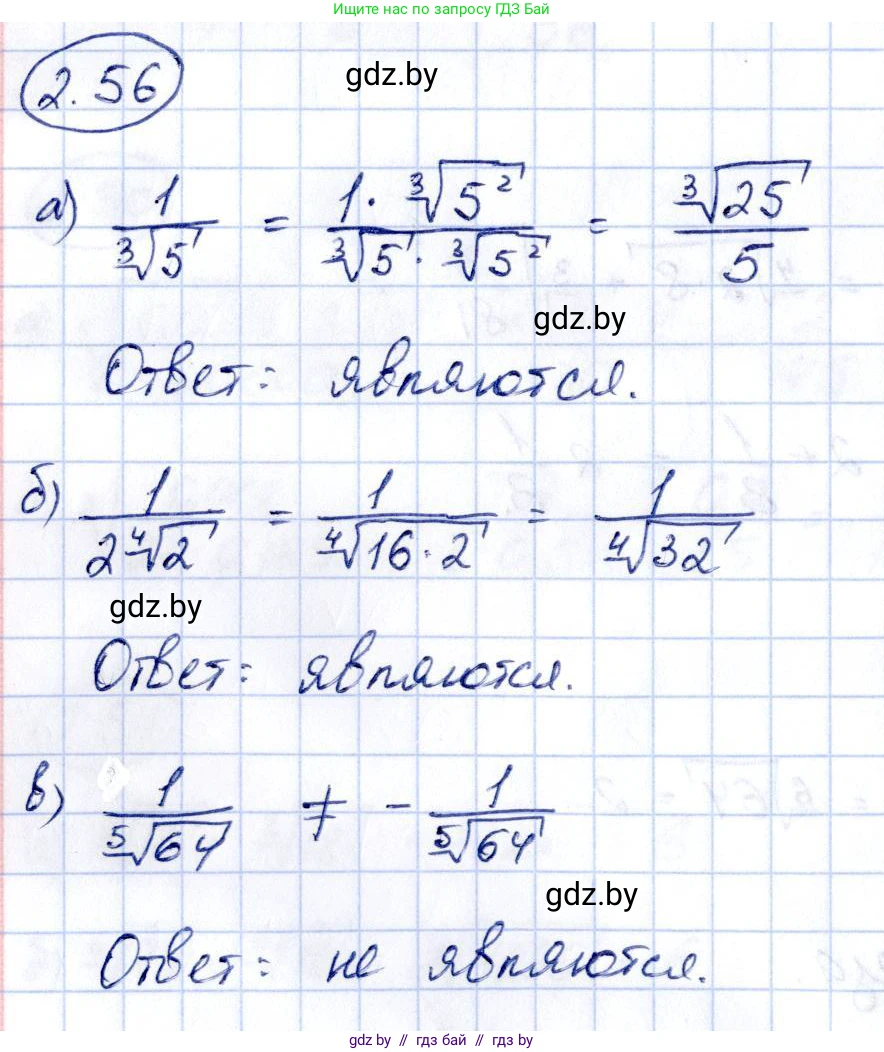 Ищите нас по запросу ГДЗ Бай
2.56
gdz.by
а) 1/∛5 = 1·∛5²/∛5·∛5² = ∛25/5
gdz.by
Ответ: являются.
б) 1/2∜2 = 1/∜16·2 = 1/∜32
gdz.by
Ответ: являются.
в) 1/⁵√64 ≠ - 1/⁵√64
gdz.by
Ответ: не являются.
gdz by // гдз бай // gdz by